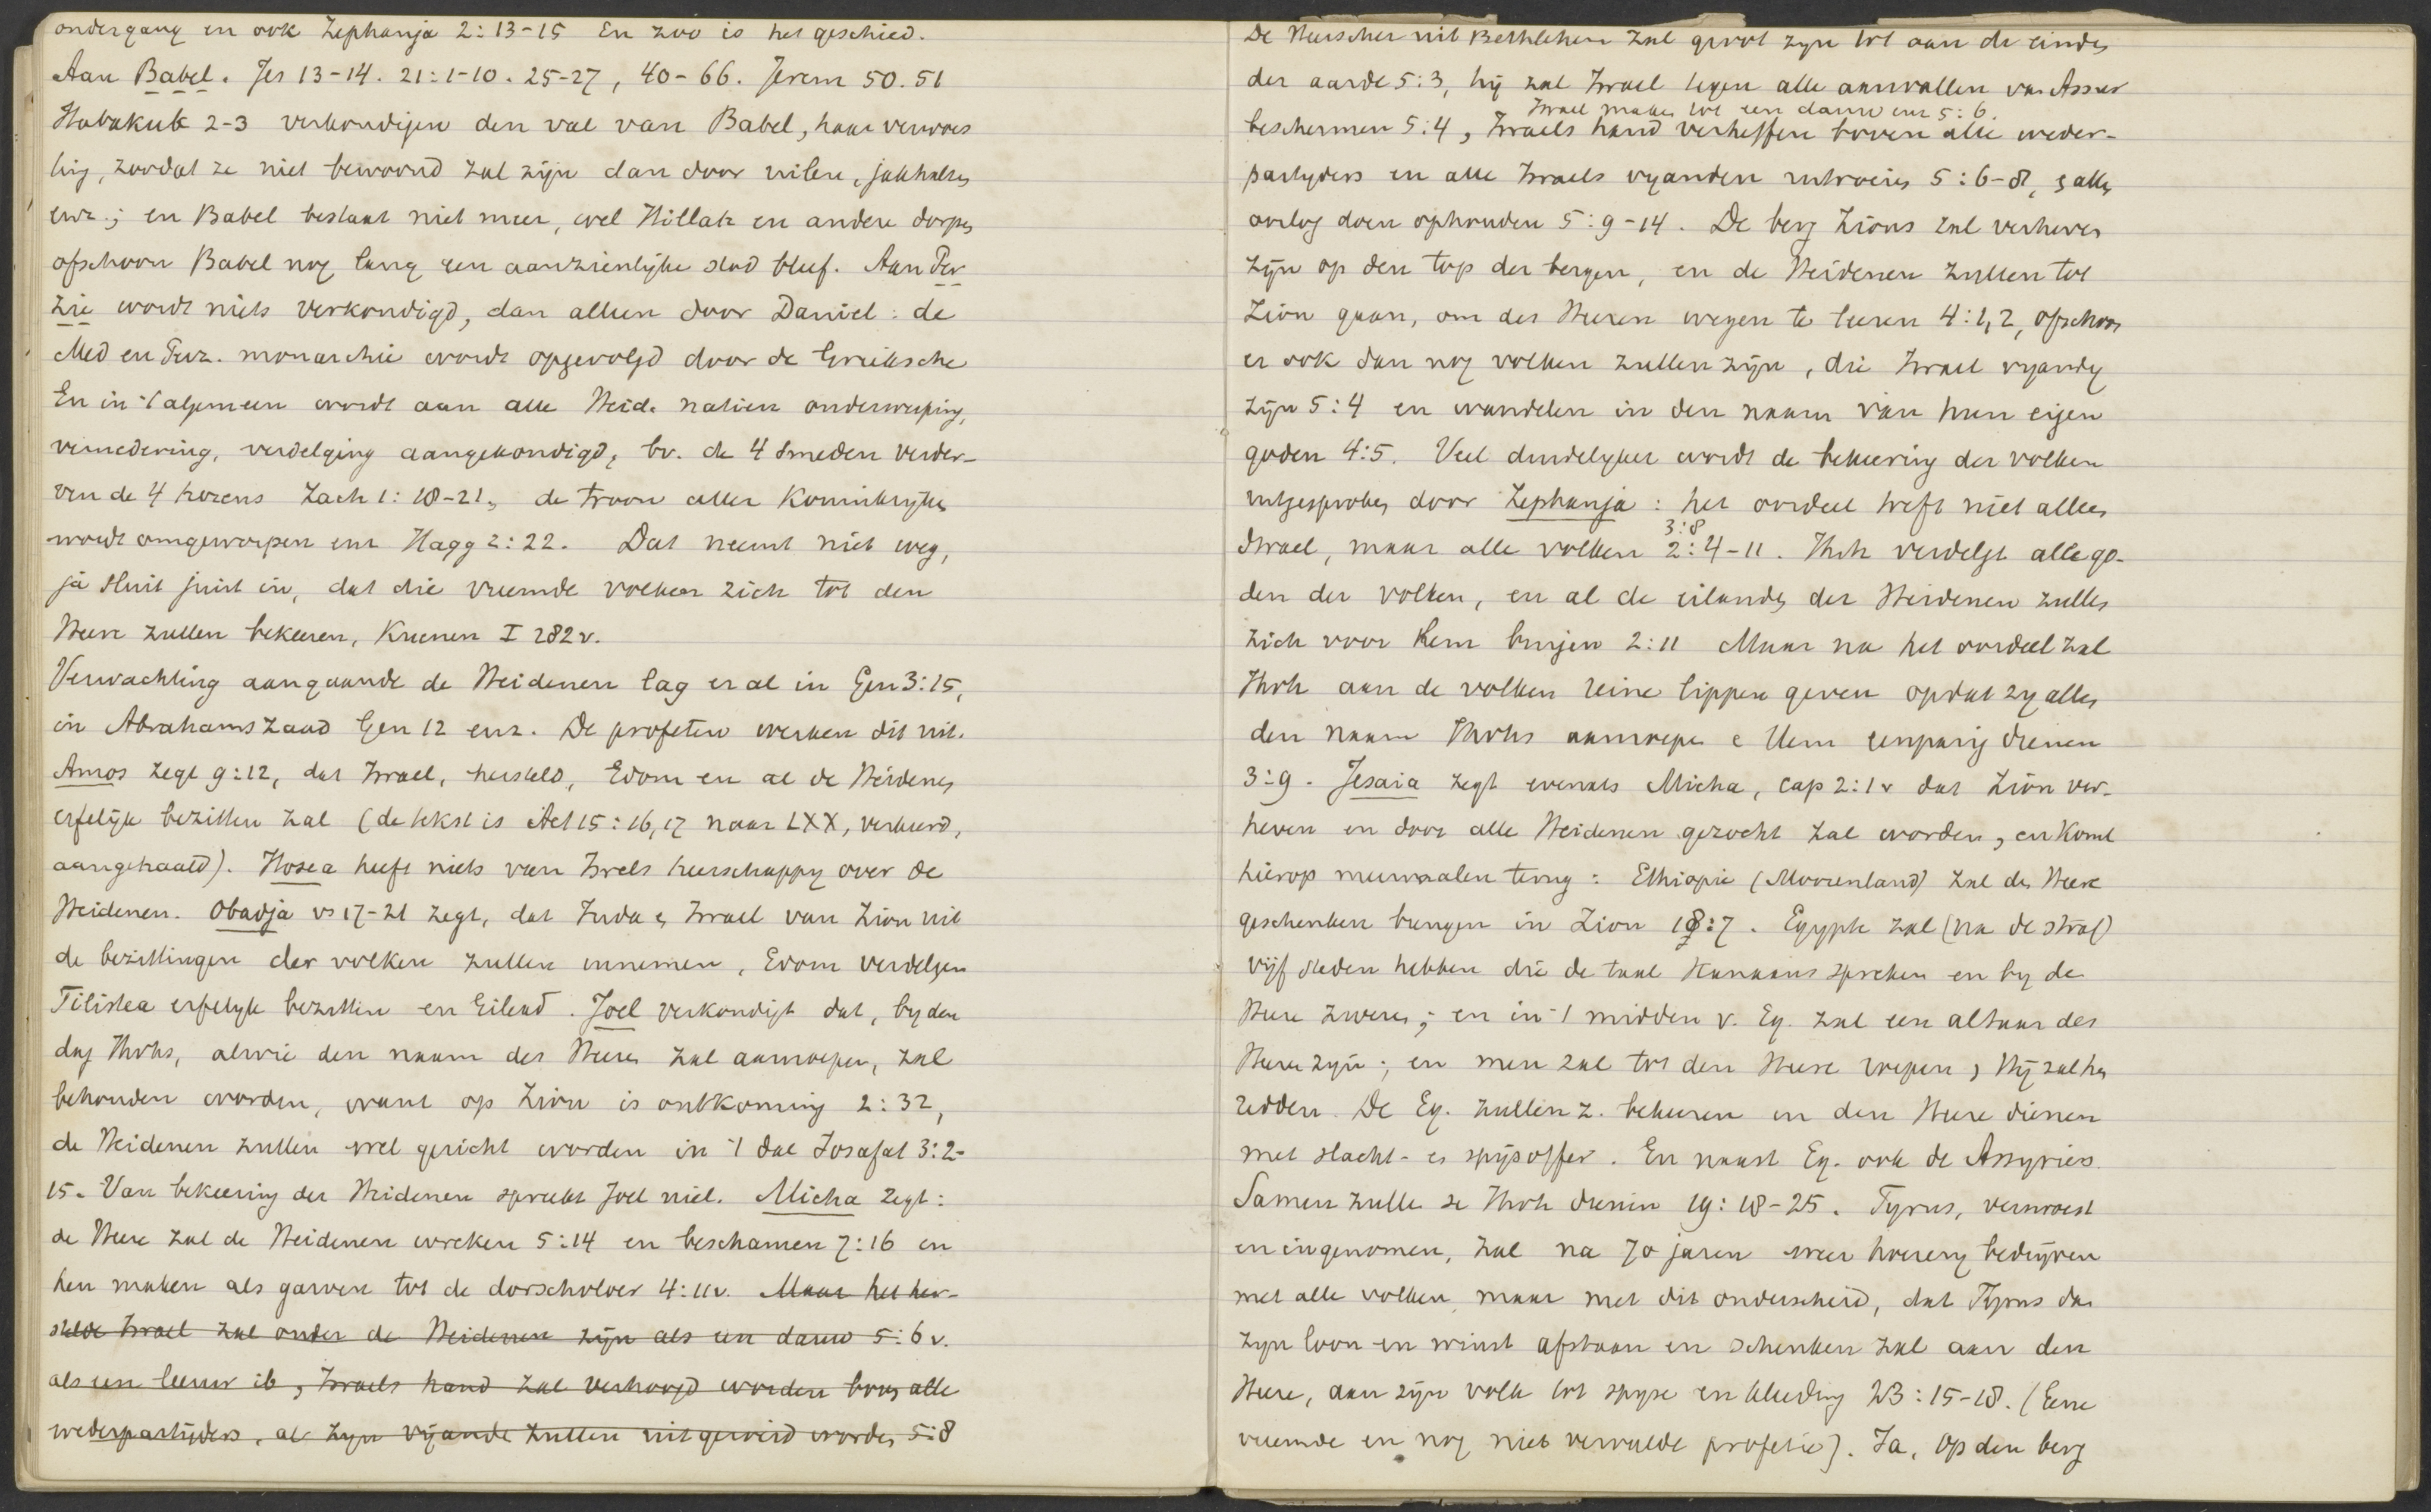 ondergang en ook Zephanja 2:13-15 En zoo is het geschied.
Aan Babel. Jes 13-14. 21:1-10. 25-27, 40-66. Jerem 50. 51
Habakuk 2-3 verkondigen den val van Babel, haar verwoes
ting, zoodat ze niet bewoond zal zijn dan door uilen, jakhalzen
enz.; en Babel bestaat niet meer, wel Hillah en andere dorpen
ofschoon Babel nog lang een aanzienlijke stad bleef. Aan Per
zie wordt niets verkondigd, dan alleen door Daniel: de
Med en Perz. monarchie wordt opgevolgd door de Grieksche
En in 't algemeen wordt aan alle Heid. natien onderwerping,
vernedering, verdelging aangekondigd, bv. de 4 smeden verder-
ven de 4 horens Zach 1:18-21, de troon aller Koninkrijken
wordt omgeworpen enz Hagg 2:22. Dat neemt niet weg,
ja sluit juist in, dat die vreemde volken zich tot den
Heere zullen bekeeren, Kuenen I 282v.
Verwachting aangaande de Heidenen lag er al in Gen 3:15,
in Abrahams zaad Gen 12 enz. De profeten werken dit uit.
Amos zegt 9:12, dat Israel, hersteld, Edom en al de Heidenen
erfelijk bezitten zal (de tekst is Act 15:16,17 naar LXX, verkeerd,
aangehaald). Hosea heeft niets van Isrels heerschappy over de
Heidenen. Obadja vs 17-21 zegt, dat Juda en Israel van Zion uit
de bezittingen der volken zullen innemen, Edom verdelgen
Filistea erfelyk bezitten en Gilead. Joel verkondigt dat, by den
dag Jhvhs, alwie den naam des Heeren zal aanroepen, zal
behouden worden, want op Zion is ontkoming 2:32,
de Heidenen zullen wel gericht worden in 't dal Josafat 3:2-
15. Van bekeering der Heidenen spreekt Joel niet. Micha zegt:
de Heere zal de Heidenen wreken 5:14 en beschamen 7:16 en
hen maken als garven tot de dorschvloer 4:11v. Maar het her-
stelde Israel zal onder de Heidenen zijn als een dauw 5:6v.
als een leeuw ib, Israels hand zal verhoogd worden boven alle
wederpartijders, al zyn vijande zullen uitgeroeid worden 5:8
De Heerscher uit Bethlehem zal groot zyn tot aan de einden
der aarde 5:3, hij zal Israel tegen alle aanvallen van Assur
Israel maken tot een dauw enz 5:6.
beschermen 5:4, Israels hand verheffen boven alle weder-
partyders en alle Israels vyanden uitroeien 5:6-8, en allen
oorlog doen ophouden 5:9-14. De berg Zions zal verheven
zijn op den top der bergen, en de Heidenen zullen tot
Zion gaan, om des Heeren wegen te leeren 4:1,2, ofschoon
er ook dan nog volken zullen zijn, die Israel vyandig
zijn 5:4 en wandelen in den naam van hun eigen
goden 4:5. Veel duidelyker wordt de bekeering der volken
uitgesproken door Zephanja: het oordeel treft niet alleen
3:8
Israel, maar alle volken 2:4-11. Jhvh verdelgt alle go-
den der volken, en al de eilanden der Heidenen zullen
zich voor Hem buigen 2:11 Maar na het oordeel zal
Jhvh aan de volken reine lippen geven opdat zy allen
den naam Jhvhs aanroepen en Hem eenparig dienen
3:9. Jesaia zegt evenals Micha, cap 2:1v dat Zion ver-
heven en door alle Heidenen gezocht zal worden, en komt
hierop meermalen terug: Ethiopie (Moorenland) zal den Heere
geschenken brengen in Zion 18:7. Egypte zal (na de straf)
vijf steden hebben die de taal Kanaans spreken en by de
Heere zweren; en in 't midden v. Eg. zal een altaar des
Heeren zijn; en men zal tot den Heere roepen, Hij zal hen
redden. De Eg. zullen z. bekeeren en den Heere dienen
met slacht- en spijsoffer. En naast Eg. ook de Assyriers.
Samen zullen ze Jhvh dienen 19:18-25. Tyrus, verwoest
en ingenomen, zal na 70 jaren weer hoerery bedrijven
met alle volken, maar met dit onderscheid, dat Tyrus dan
zyn loon en winst afstaan en schenken zal aan den
Heere, aan zijn volk tot spyze en kleeding 23:15-18. (Eene
vreemde en nog niet vervulde profetie). Ja, op den berg